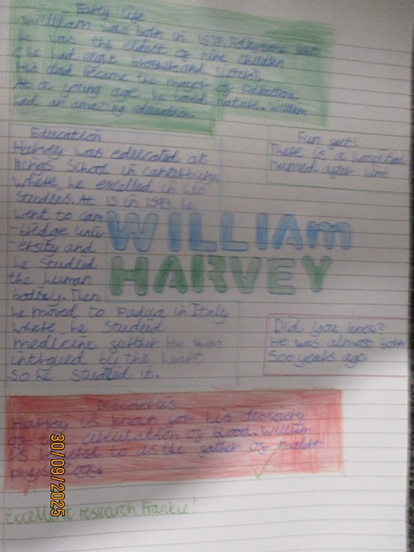 Early life
William was born in 1578, Folkestone kent
he was the eldest of nine children
His dad became the mayor of Folkestone
At a young age he loved nature. William
had an amazing education.
Education
Harvey was educated at
kings School in canterbury
where he excelled in his
Studies. At 15 in 1593, he
went to cam
-bridge univ
-ersity and
he studied
the human
Then
he moved to Padua in Italy
where he studied
medicine he was
by the heart
So he studied it.
Fun fact!
There is a hospital
named after him
WILLIAM
HARVEY
Did you know?
He was almost born
500 years ago
Discoveries
Harvey is known for his discovery
of the circulation of blood. William
is to as the father of modern
30/09/2025
Excellent research Frankie!